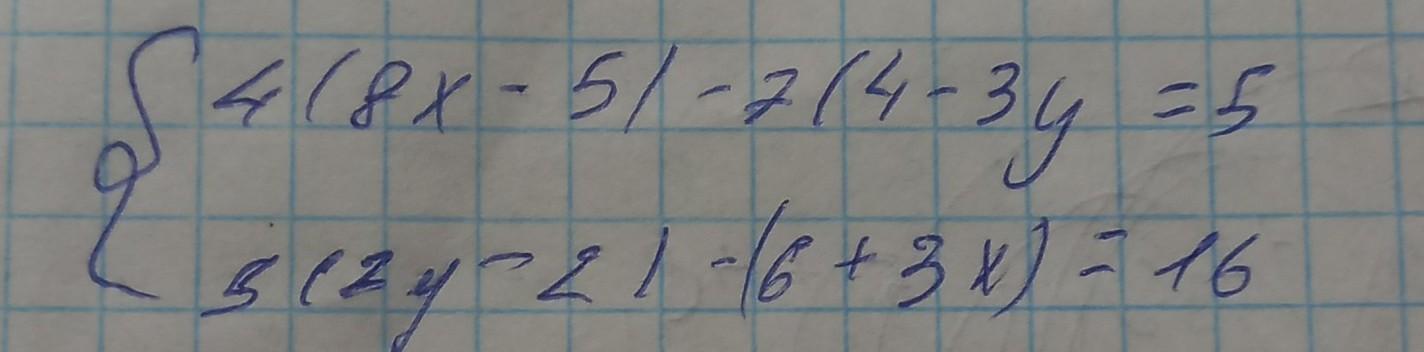 4(8x - 5) - 7(4 - 3y = 5
5(2y - 2) - (6 + 3x) = 16